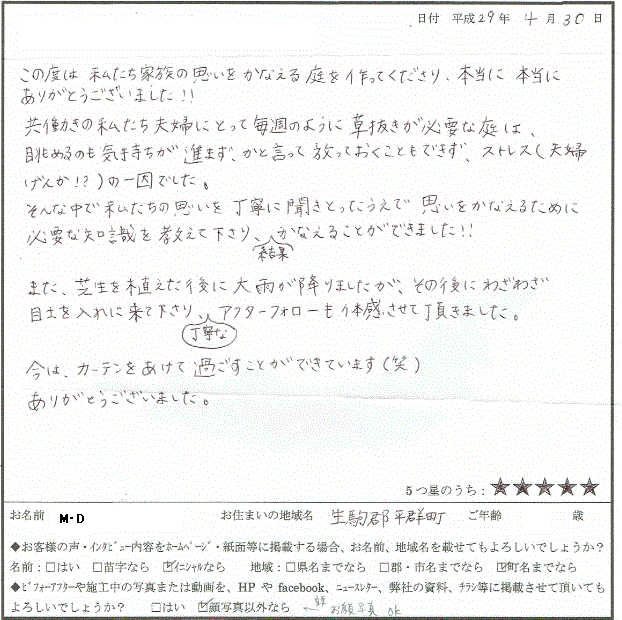 日付 平成29年 4月30日
この度は 私たち家族の思いを かなえる 庭を作ってくださり、本当に 本当に
ありがとうございました!!
共働きの私たち夫婦にとって毎週のように 草抜きが必要な庭は、
眺めるのも気持ちが進まず、かと言って 放っておくこともできず、ストレス(夫婦
げんか!?)の一因でした。
そんな中で 私たちの思いを 丁寧に聞きとったうえで 思いをかなえるために
必要な知識を教えて下さり、かなえることができました!!
結果
また、芝生を植えた後に 大雨が降りましたが、その後にわざわざ
目土を入れに来て下さり、アフターフォローも体感させて頂きました。
丁寧な
今は、カーテンをあけて 過ごすことができています(笑)
ありがとうございました。
5つ星のうち:★★★★★
お名前 M-D お住まいの地域名 生駒郡平群町 ご年齢 歳
◆お客様の声・インタビュー内容をホームページ・紙面等に掲載する場合、お名前、地域名を載せてもよろしいでしょうか?
名前:□はい □苗字なら ☑イニシャルなら 地域:□県名までなら □郡・市名までなら ☑町名までなら
◆ビフォーアフターや施工中の写真または動画を、HPやfacebook、ニュースレター、弊社の資料、チラシ等に掲載させて頂いても
よろしいでしょうか? □はい ☑顔写真以外なら ← お顔写真 ok